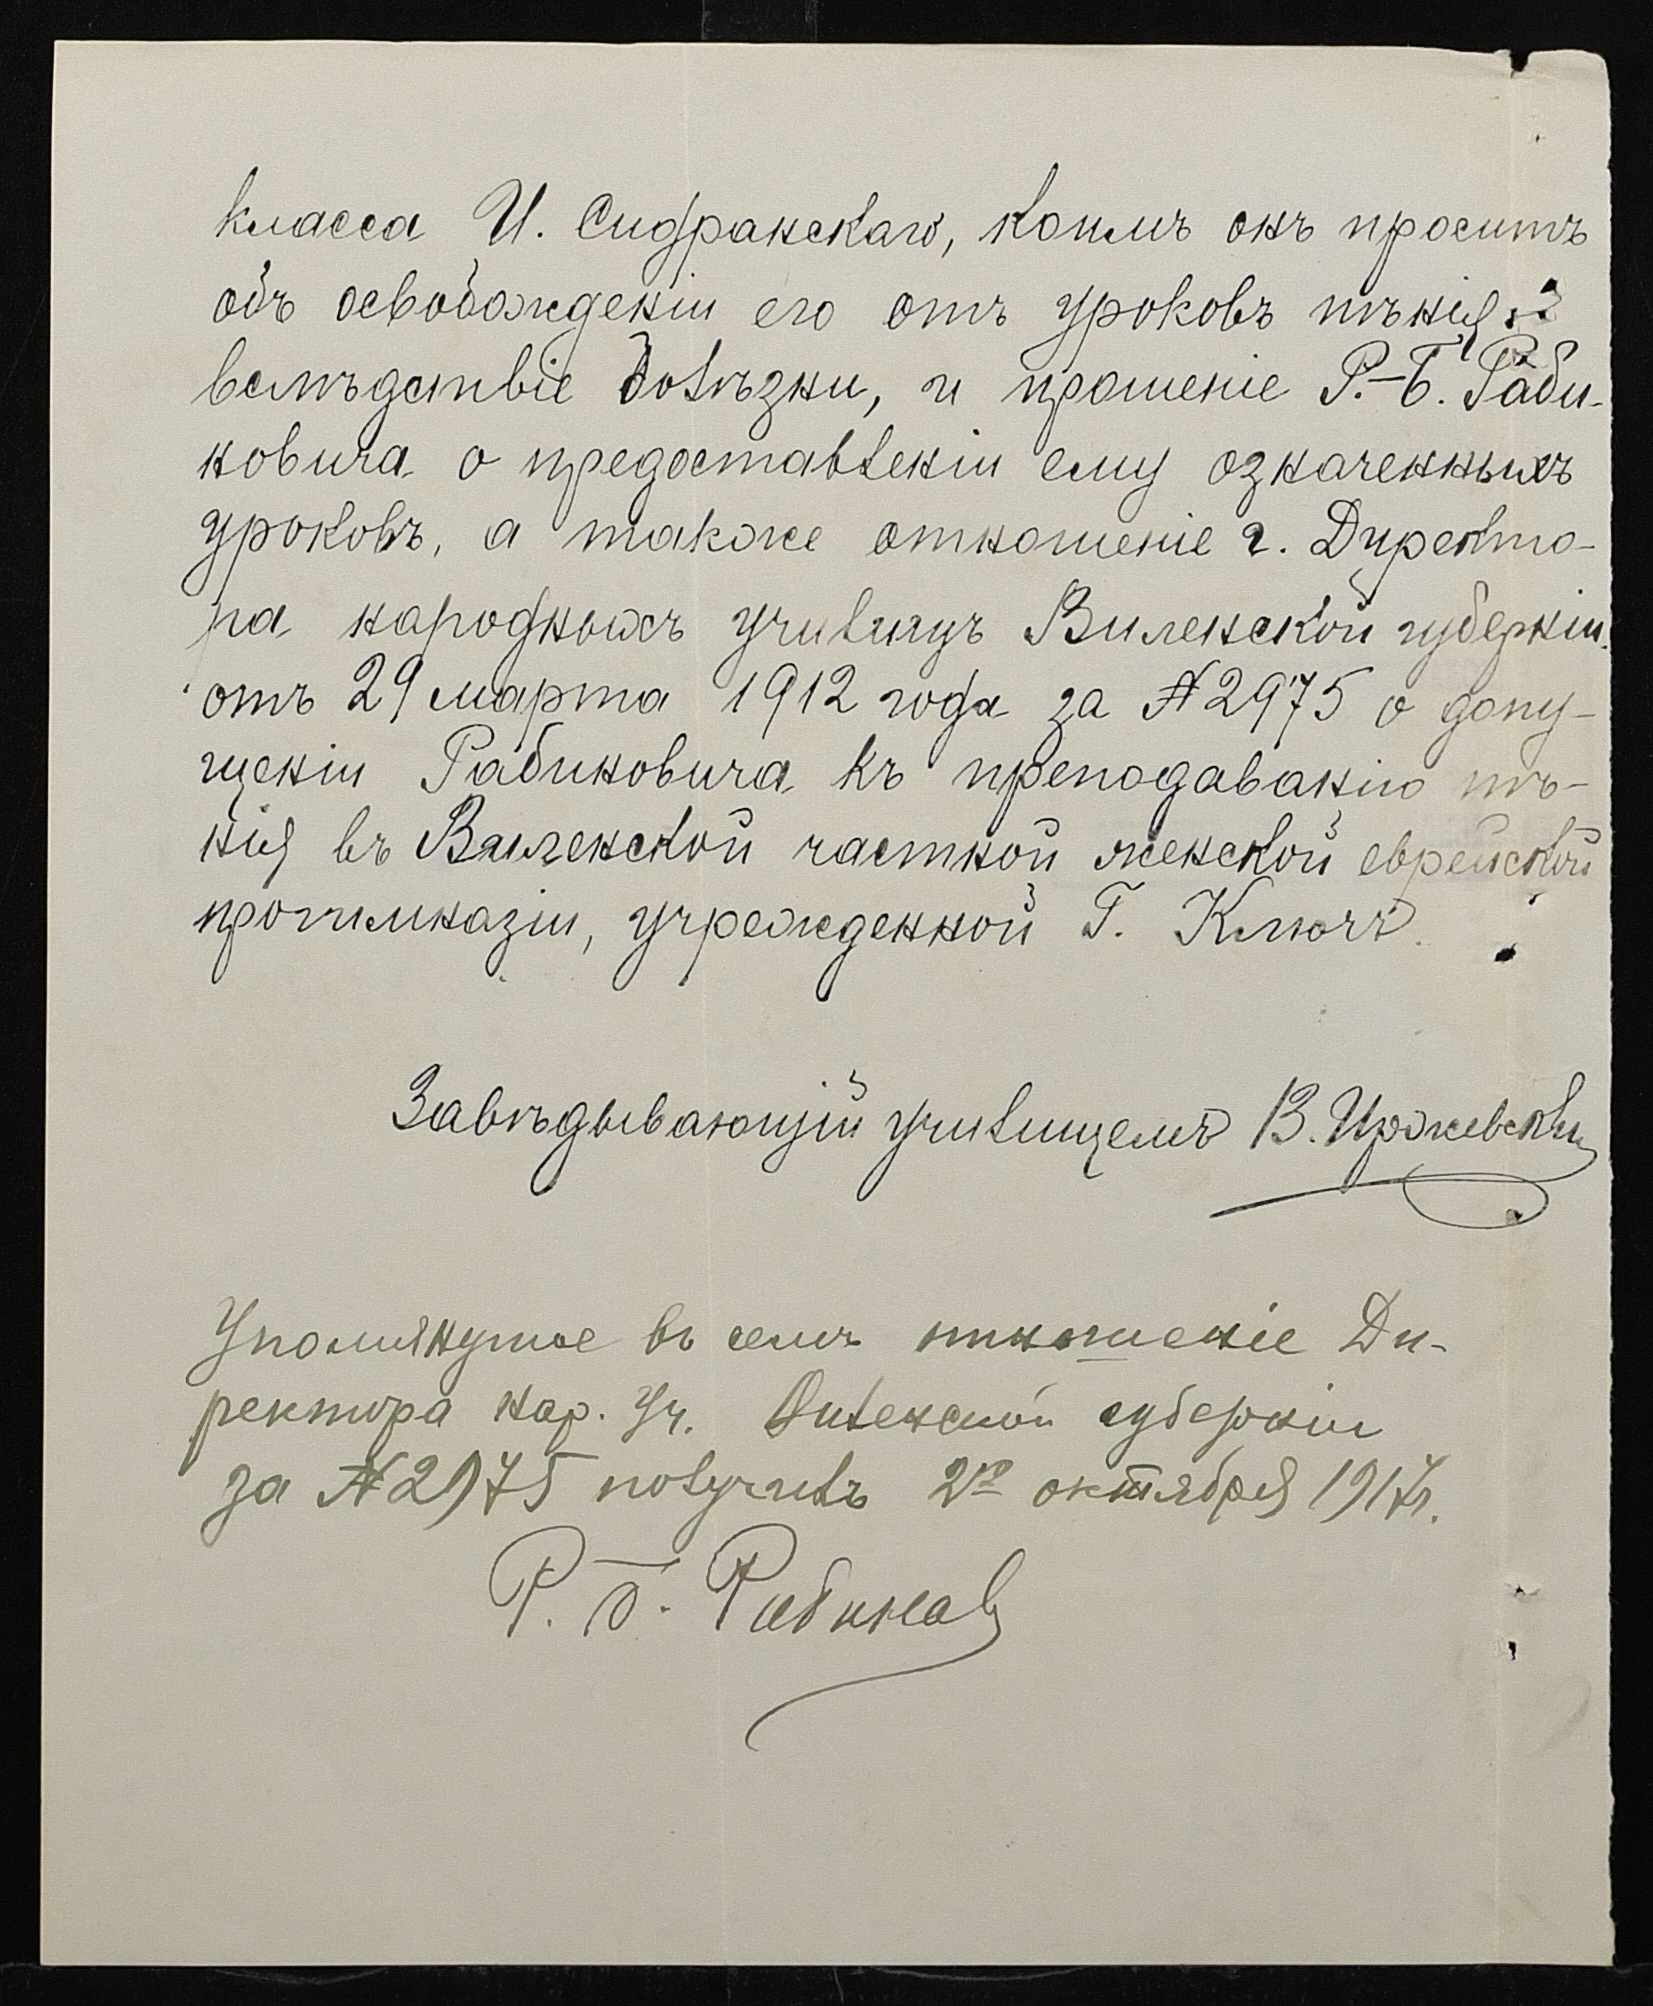 класса И. Сидранскаго, коимъ онъ проситъ
объ освобожденіи его отъ уроковъ пѣнія
вслѣдствіе болѣзни, и прошеніе Р.-Б. Раби-
новича о предоставленіи ему означенныхъ
уроковъ, а также отношеніе г. Директо-
ра народныхъ училищъ Виленской губерніи
отъ 29 марта 1912 года за № 2975 о допу-
щеніи Рабиновича къ преподаванію пѣ-
нія въ Виленской частной женской еврейской
прогимназіи, учрежденной Г. Ключъ.
Завѣдывающій училищемъ В.
Упомянутое въ семъ отношеніе Ди-
ректора нар. уч. Виленской губерніи
за № 2975 получилъ 2го октября 1917г.
Р. Б. Рабинов